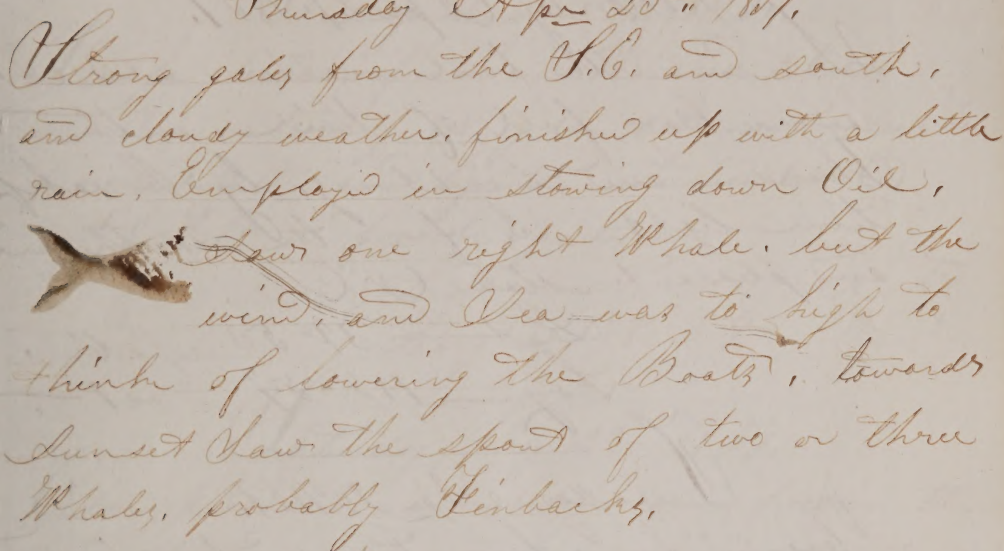 Thursday Apr
Strong gales from the S.E. and south.
and cloudy weather. finished up with a little
rain. Employed in stowing down Oil.
Saw one right Whale. but the
wind, and Sea was to high to
think of lowering the Boats, towards
sunset Saw the spout of two or three
Whales. probably Finbacks.